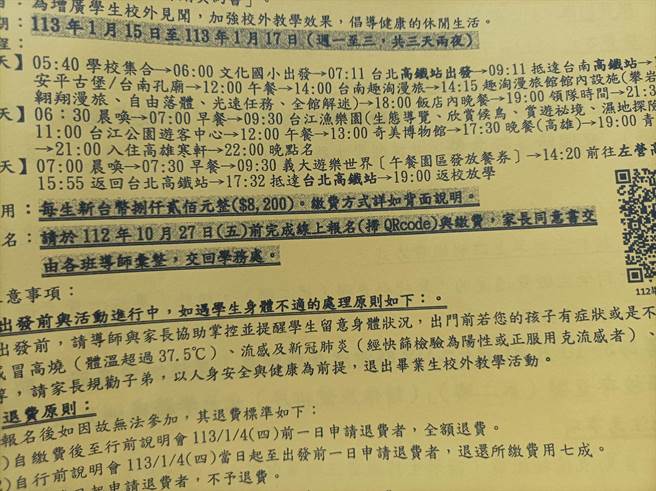 ：為增廣學生校外見聞，加強校外教學效果，倡導健康的休閒生活。
期：113年1月15日至113年1月17日（週一至三，共三天兩夜）
程：
天】05:40 學校集合→06:00 文化國小出發→07:11 台北高鐵站出發→09:11 抵達台南高鐵
安平古堡/台南孔廟→12:00 午餐→14:00 台南趣淘漫旅→14:15 趣淘漫旅館館內設施(攀岩
翱翔漫旅、自由落體、光速任務、全館解述)→18:00 飯店內晚餐→19:00 領隊時間→21:3
天】06：30 晨喚→07:00 早餐→09:30 台江漁樂園(生態導覽、欣賞候鳥、賞遊秘境、濕地探險
11:00 台江公園遊客中心→12:00 午餐→13:00 奇美博物館→17:30 晚餐(高雄)→19:00 青
→21:00 入住高雄寒軒→22:00 晚點名
天】07:00 晨喚→07:30 早餐→09:30 義大遊樂世界〔午餐園區發放餐券〕→14:20 前往左營高
15:55 返回台北高鐵站→17:32 抵達台北高鐵站→19:00 返校放學
用：每生新台幣捌仟貳佰元整($8,200)。繳費方式詳如背面說明。
名：請於 112 年 10 月 27 日(五)前完成線上報名(掃 QRcode)與繳費，家長同意書交
由各班導師彙整，交回學務處。
112年
意事項：
出發前與活動進行中，如遇學生身體不適的處理原則如下：。
出發前，請導師與家長協助掌控並提醒學生留意身體狀況，出門前若您的孩子有症狀或是不
或冒高燒（體溫超過 37.5℃）、流感及新冠肺炎（經快篩檢驗為陽性或正服用克流感者）、
等，請家長規勸子弟，以人身安全與健康為前提，退出畢業生校外教學活動。
退費原則：
報名後如因故無法參加，其退費標準如下：
)自繳費後至行前說明會 113/1/4(四)前一日申請退費者，全額退費。
2)自行前說明會 113/1/4(四)當日起至出發前一日申請退費者，退還所繳費用七成。
日起申請退費者，不予退費。